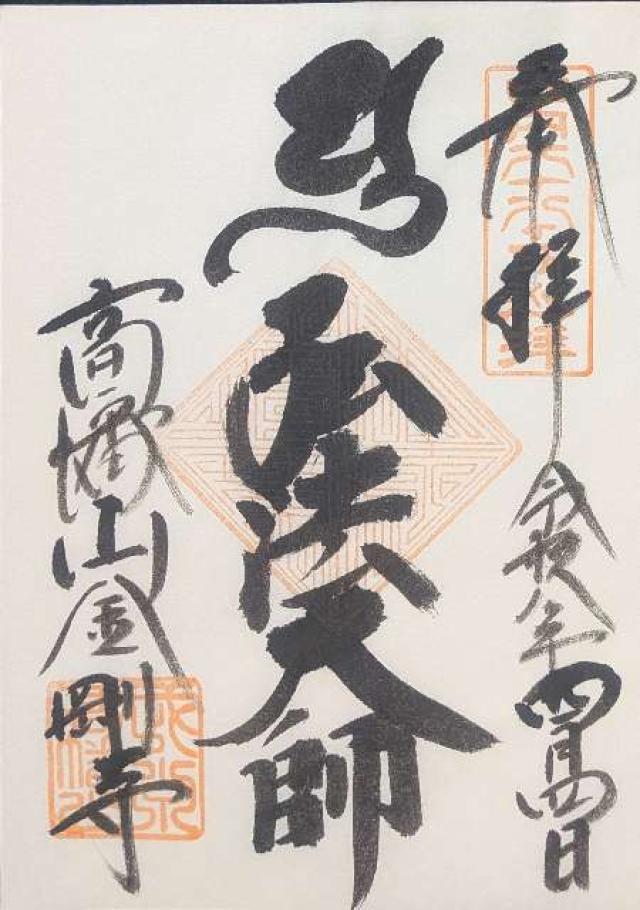 奉拝
令和年四月四日
弘法大師
高幡山金剛寺